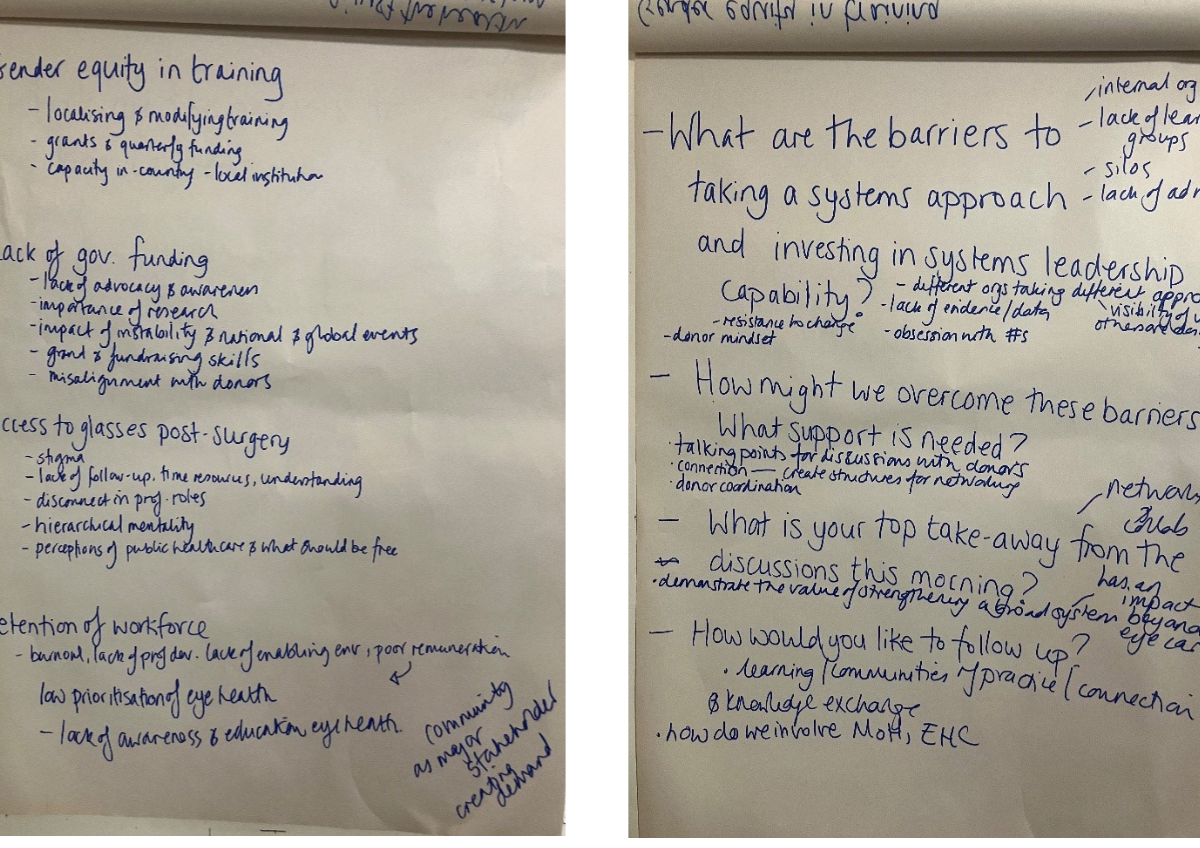 ender equity in training
- localising & modifying training
- grants & quarterly funding
- capacity in-country - local institution
ack of gov. funding
- lack of advocacy & awareness
- importance of research
- impact of instability & national & global events
- grant & fundraising skills
- misalignment with donors
ccess to glasses post-surgery
- stigma
- lack of follow-up, time resources, understanding
- disconnect in prof. roles
- hierarchical mentality
- perceptions of public healthcare & what should be free
etention of workforce
- burnout, lack of prof dev. lack of enabling env, poor remuneration
low prioritisation of eye health
- lack of awareness & education eye health.
community
as major
stakeholder
creating
demand
- What are the barriers to
taking a systems approach
and investing in systems leadership
capability?
internal org
- lack of lear
groups
- silos
- lack of adv
- different orgs taking different appro
visibility of
others are doi
- lack of evidence/data
- resistance to change
- obsession with #s
- donor mindset
- How might we overcome these barriers
What support is needed?
· talking points for discussions with donors
· connection — create structures for networking
· donor coordination
- What is your top take-away from the
discussions this morning?
network
& collab
· demonstrate the value of strengthening a broad system
has an
impact
beyond
eye car
- How would you like to follow up?
· learning/communities of practice/connection
& knowledge exchange
· how do we involve MoH, EHC